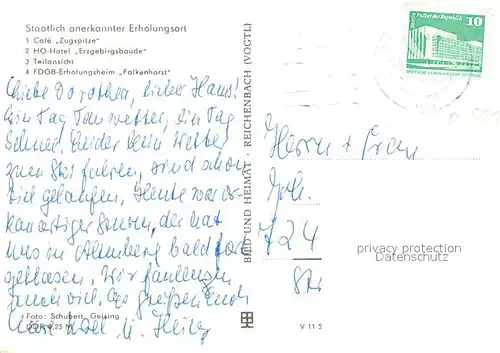 Staatlich anerkannter Erholungsort
1 Café „Zugspitze"
2 HO-Hotel „Erzgebirgsbaude"
3 Teilansicht
4 FDGB-Erholungsheim „Falkenhorst"
Liebe Dorothea, lieber Hans!
Ein Tag Tauwetter, ein Tag
Schnee, leider kein Wetter
zum Ski fahren, sind schon
viel gelaufen. Heute war
Sturm, der hat
uns in Altenberg bald fort
geblasen. Wir faulenzen
auch viel. Es grüßen Euch
Foto: Schubert, Geising
DDR 0,25 M
BILD UND HEIMAT · REICHENBACH (VOGTL)
V 11 5
Palast der Republik
10
DEUTSCHE DEMOKRATISCHE REPUBLIK
Herrn + Frau
Joh.
724
privacy protection
Datenschutz